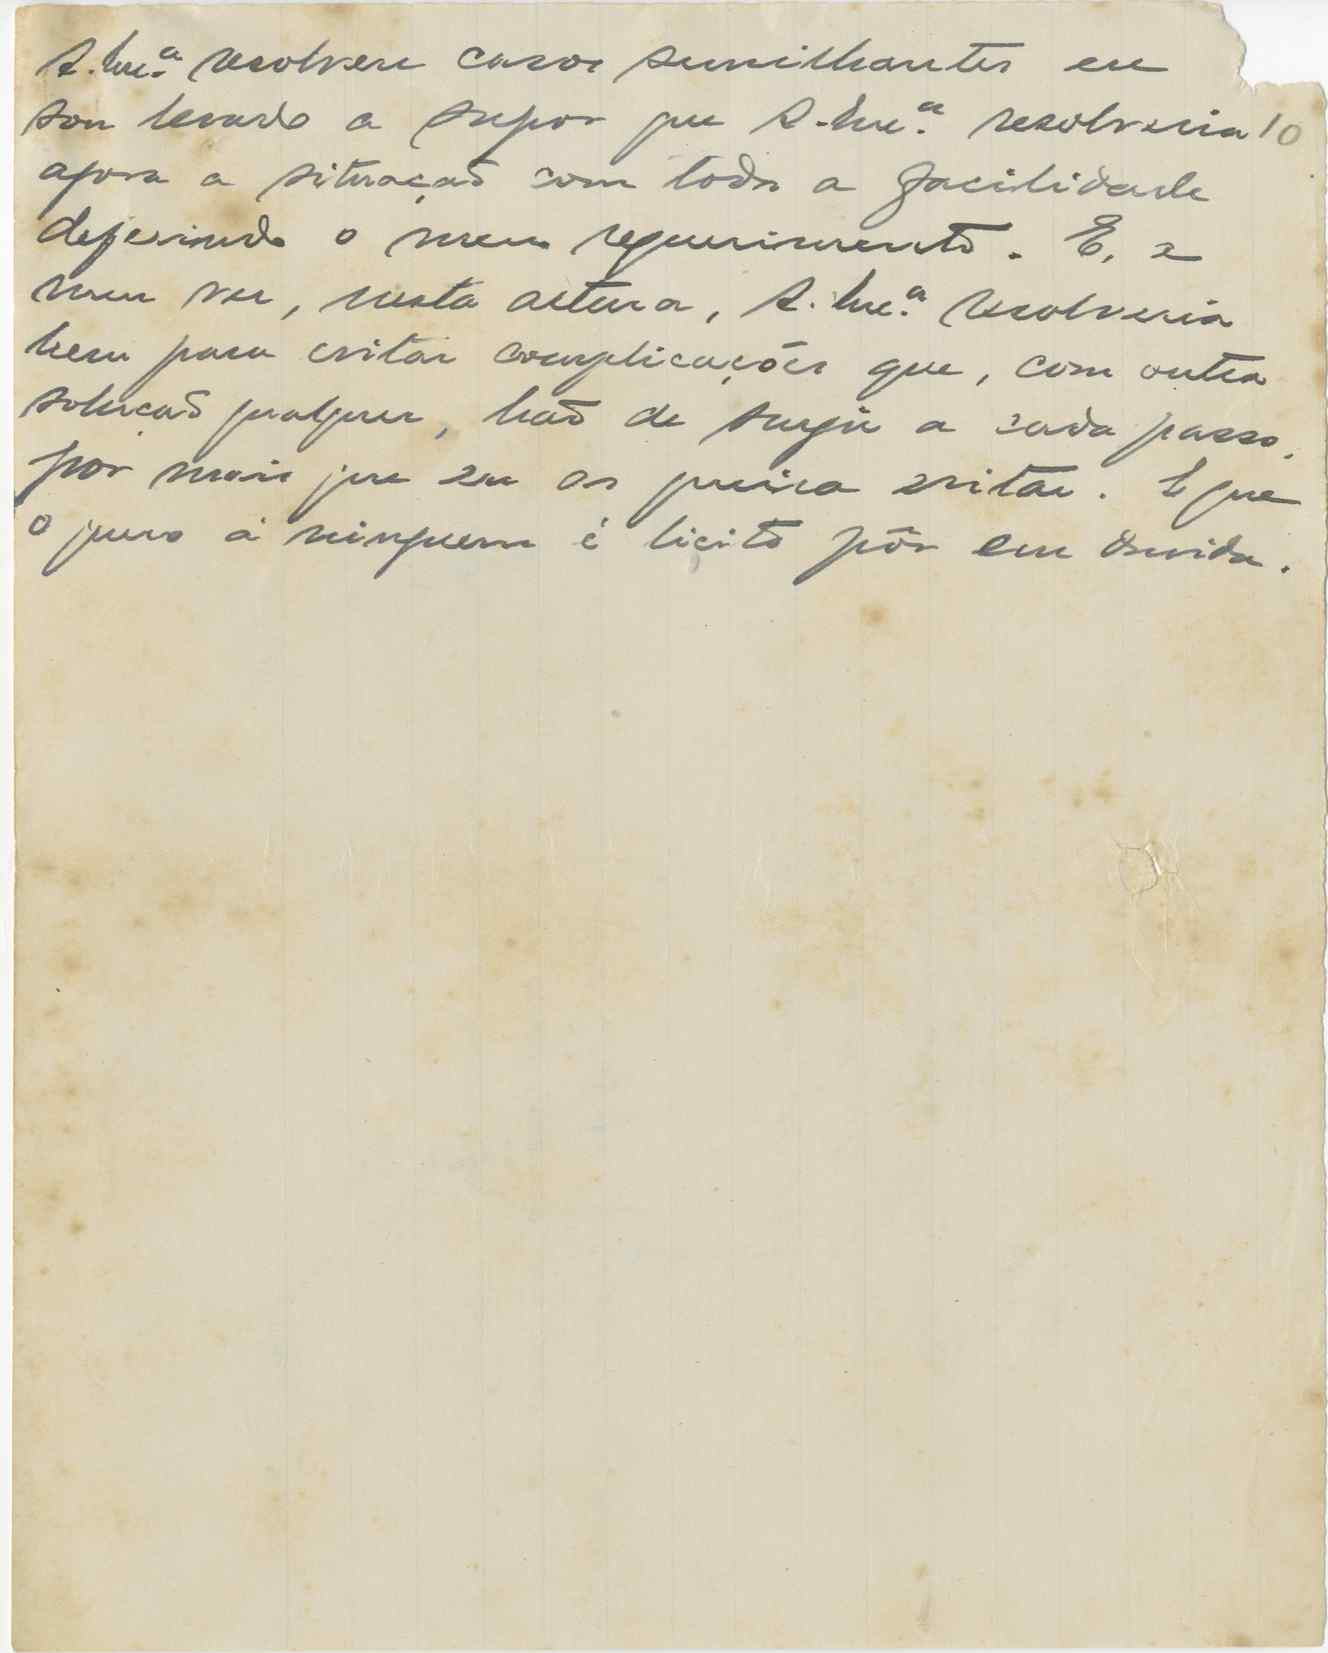 S. Ex.ª resolveu casos semilhantes eu
sou levado a supor que S. Ex.ª resolveria 10
agora a situação com toda a facilidade
deferindo o meu requerimento. E, a
meu ver, nesta altura, S. Ex.ª resolveria
bem para evitar complicações que, com outra
solução qualquer, hão de surgir a cada passo,
por mais que eu as queira evitar. E que
o quero a ninguem é licito pôr em duvida.